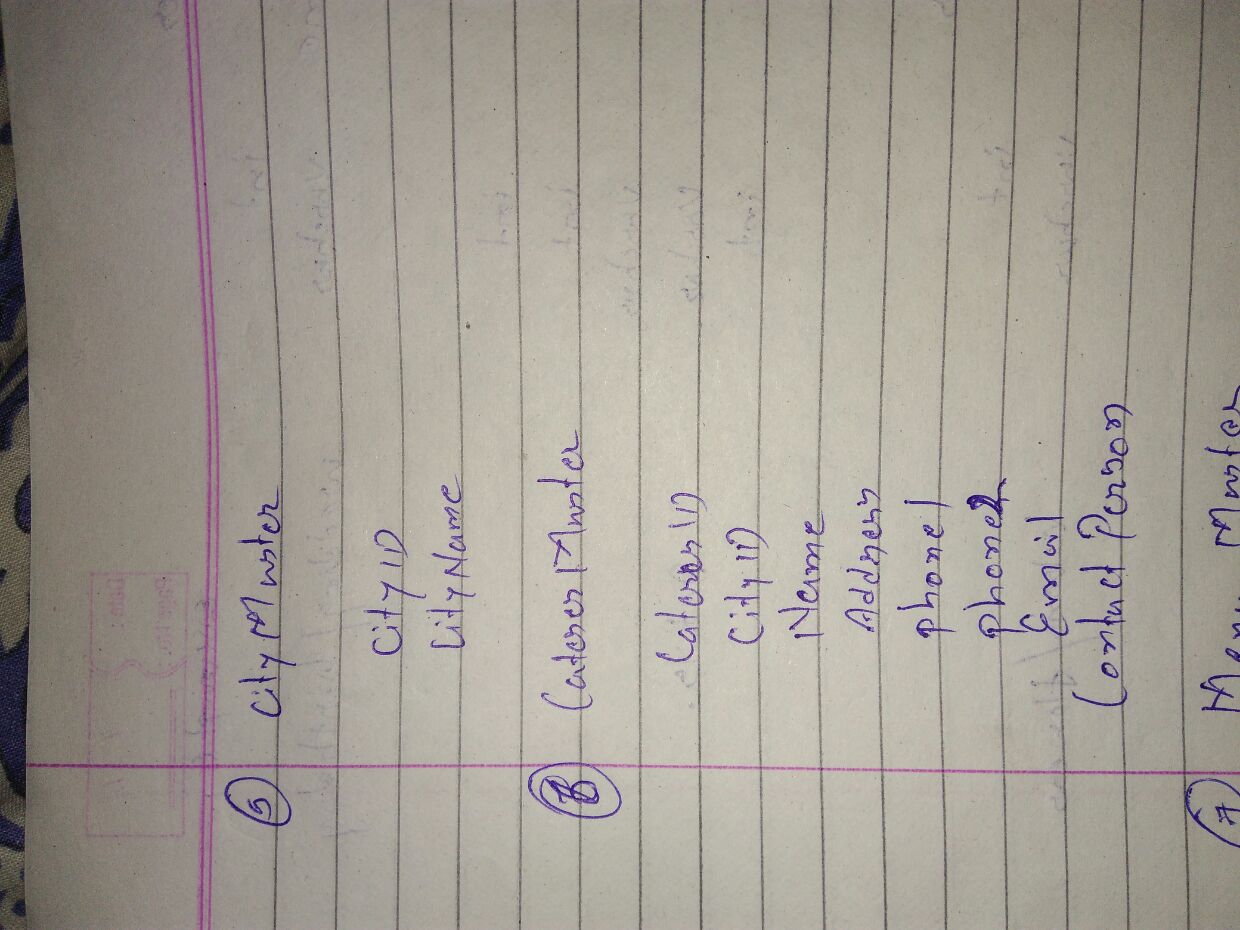 5 City Master
City ID
City Name
6 Caterer Master
Caterer ID
City ID
Name
Address
phone1
phone2
Email
Contact Person
7 Menu Master